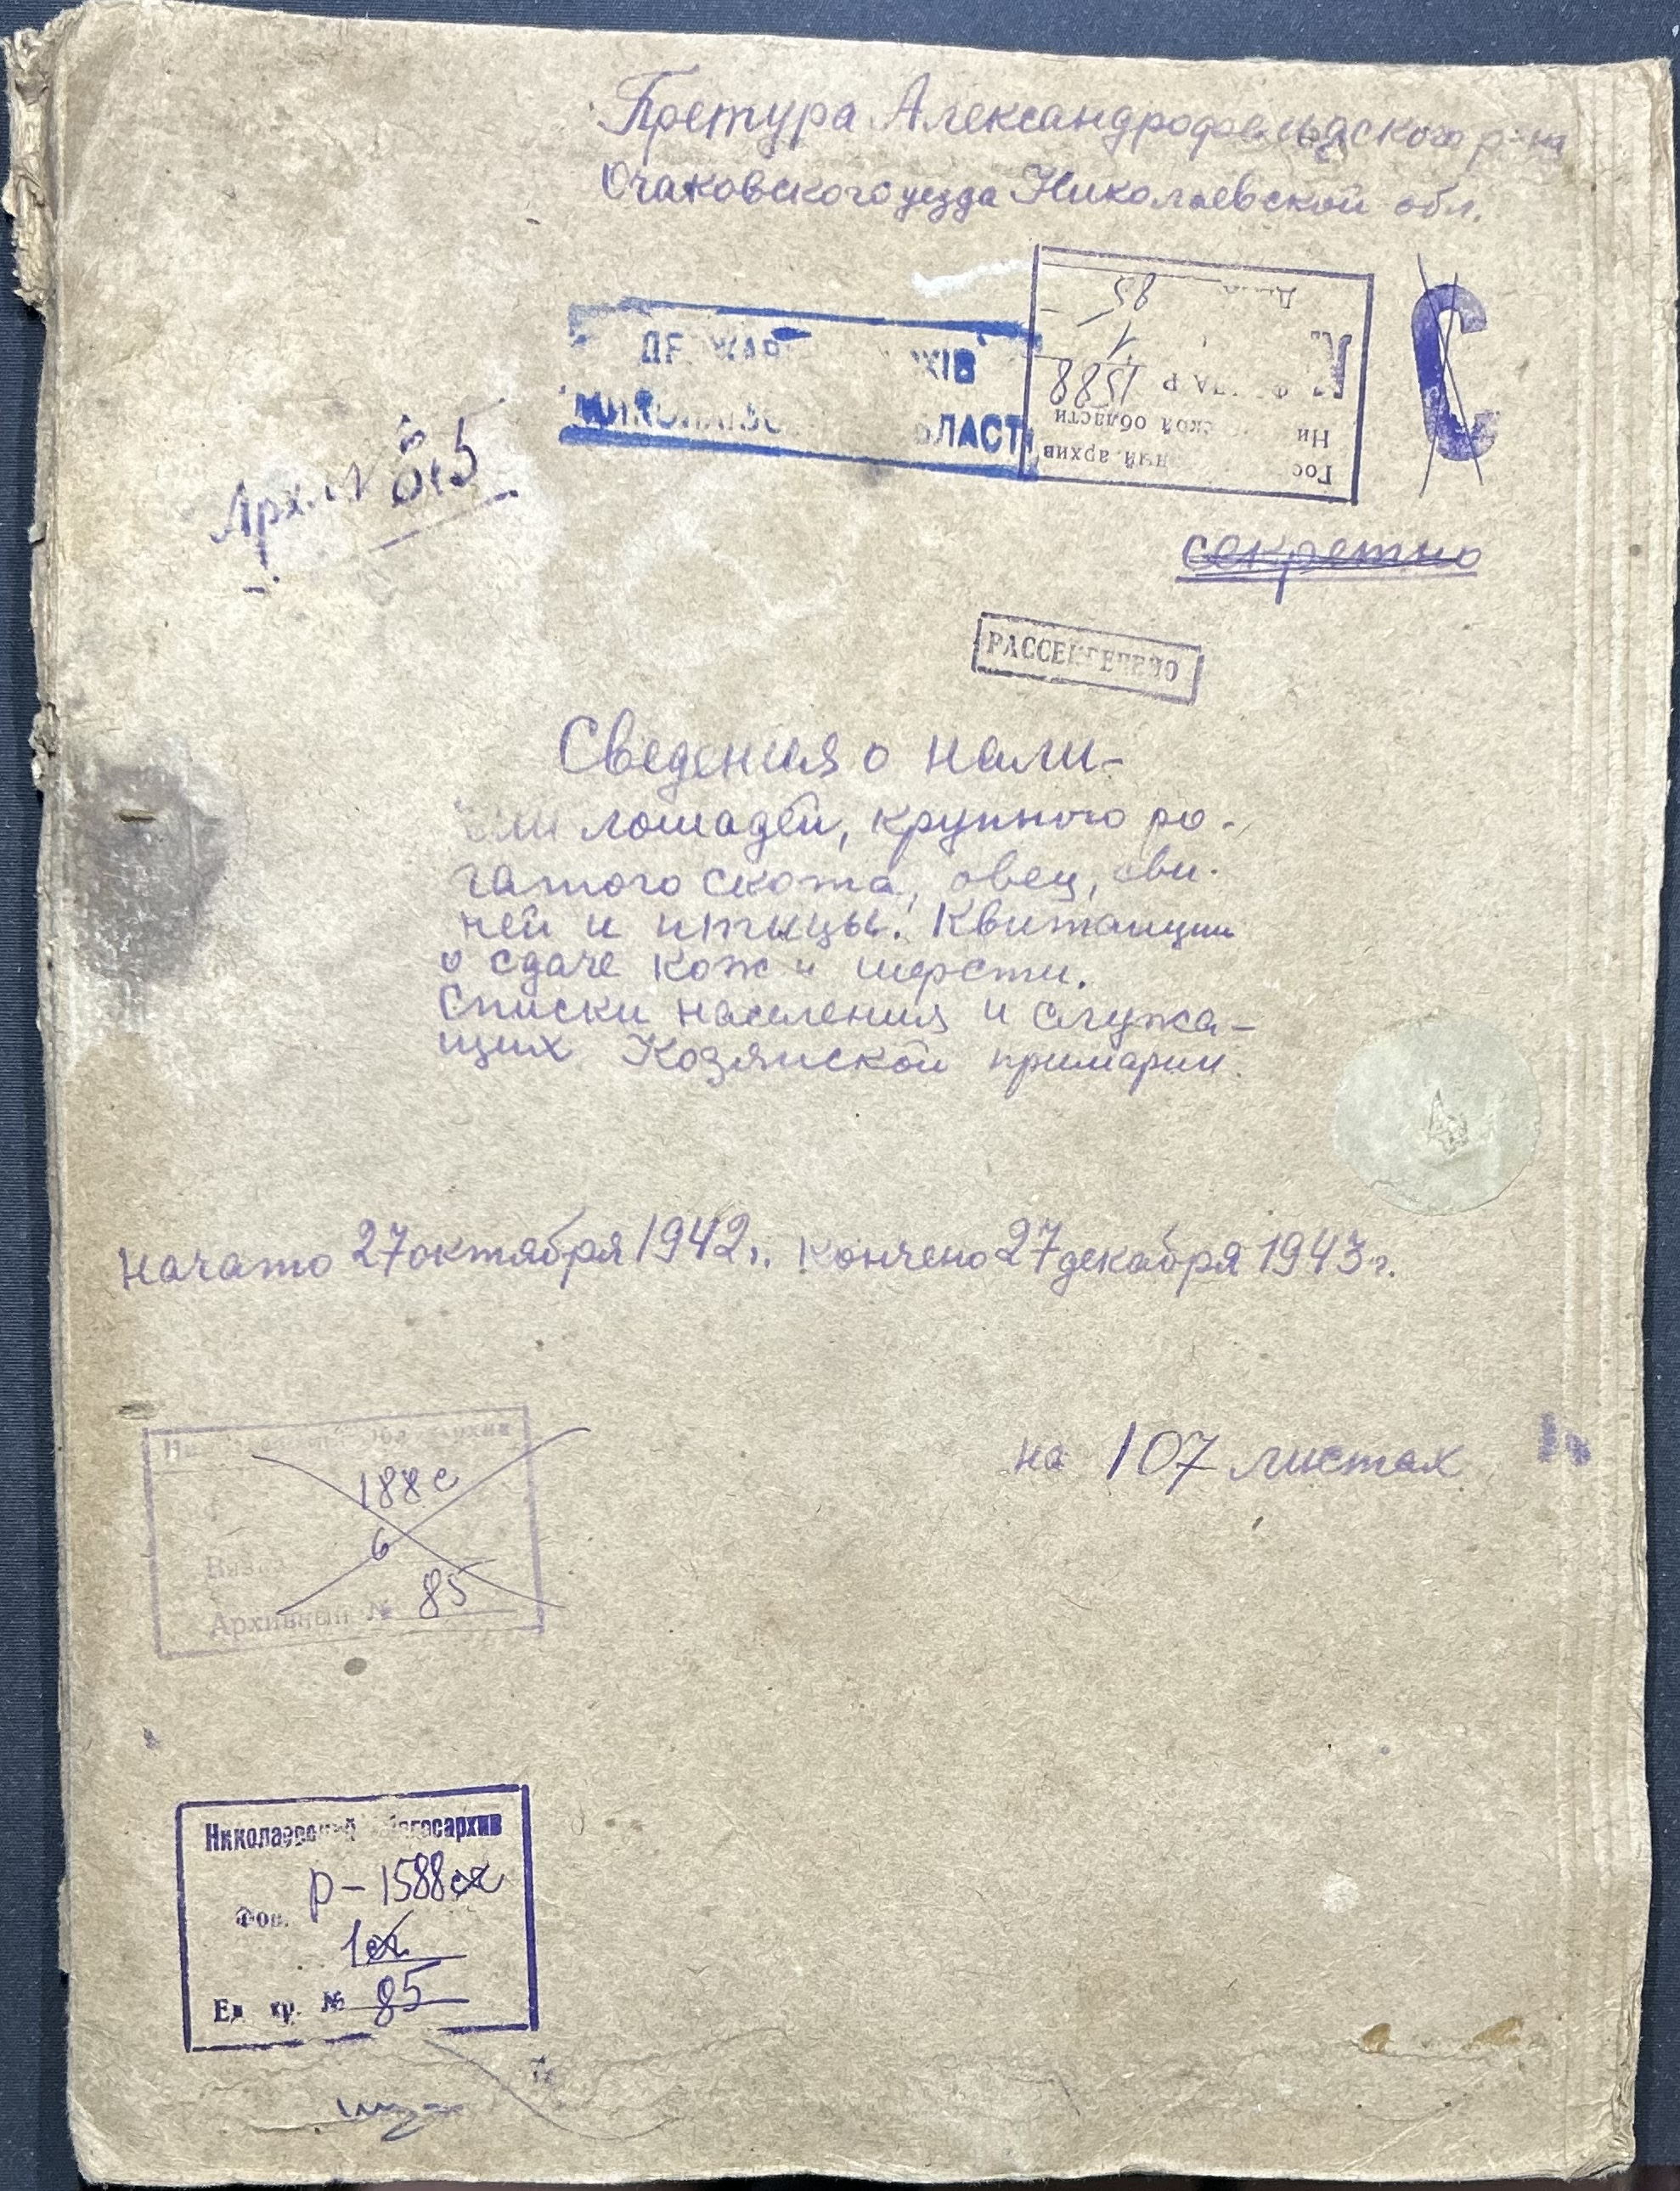 Претура Александрофельдского р-на
Очаковского уезда Николаевской обл.
С
Дело 85
1
ФОНДА Р 1588
ской области
Гос ный архив
Арх. №
секретно
РАССЕКРЕЧЕНО
Сведения о нали-
чии лошадей, крупного ро-
гатого скота, овец, сви-
ней и птицы. Квитанции
о сдаче кож и шерсти.
Списки населения и служа-
щих Козянской примарии.
начато 27 октября 1942г. кончено 27 декабря 1943 г.
на 107 листах
188с
6
Архивный № 85
Николаевский облгосархив
Фон. Р-1588
1
Ед. хр. № 85